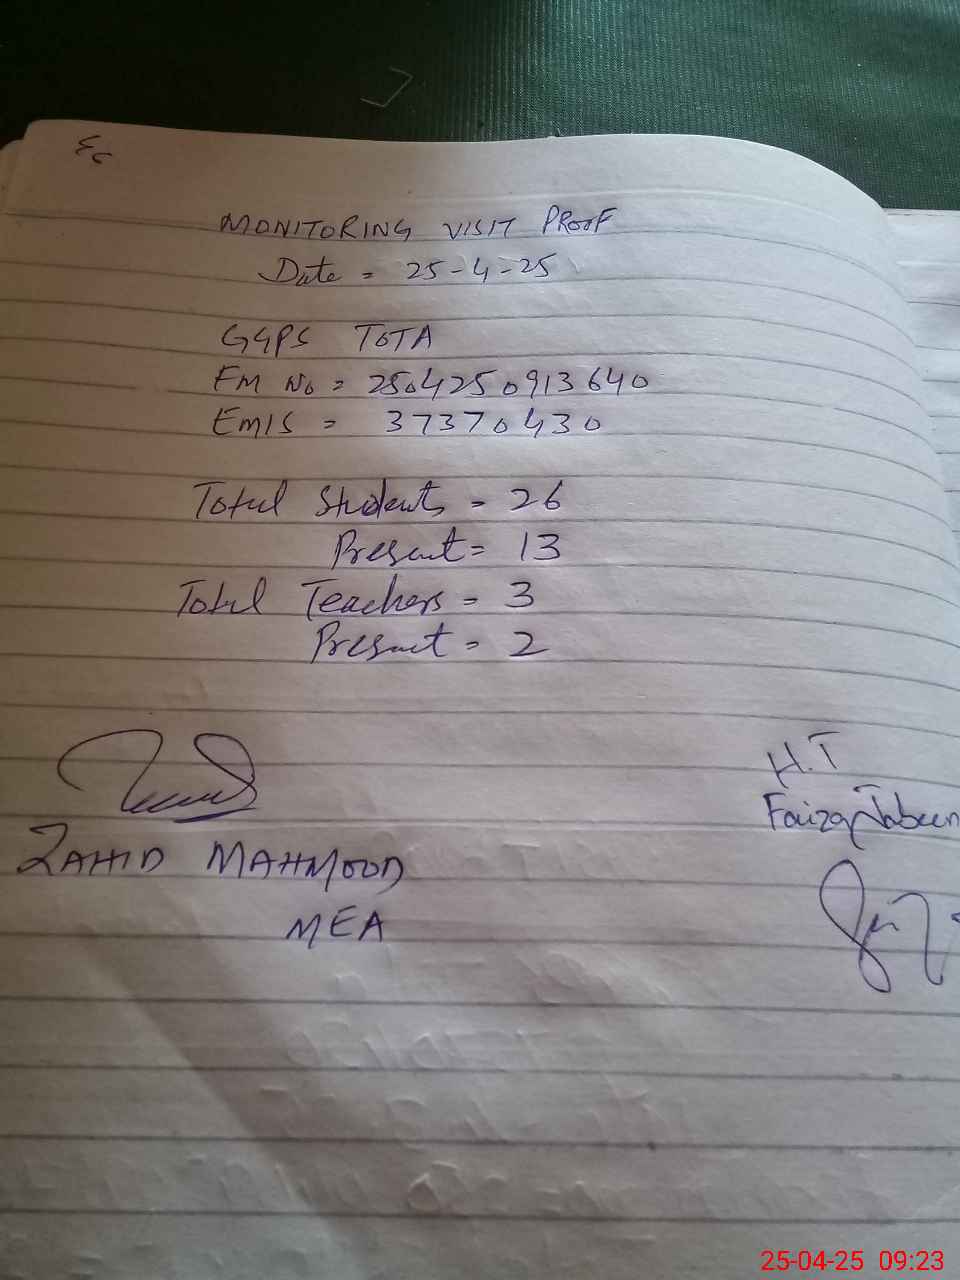 MONITORING VISIT PROOF
Date = 25-4-25
GGPS TOTA
FM No = 250425 0913640
EMIS = 37370430
Total Students = 26
Present = 13
Total Teachers = 3
Present = 2
H.T
Faiza Jabeen
ZAHID MAHMOOD
MEA
25-04-25 09:23